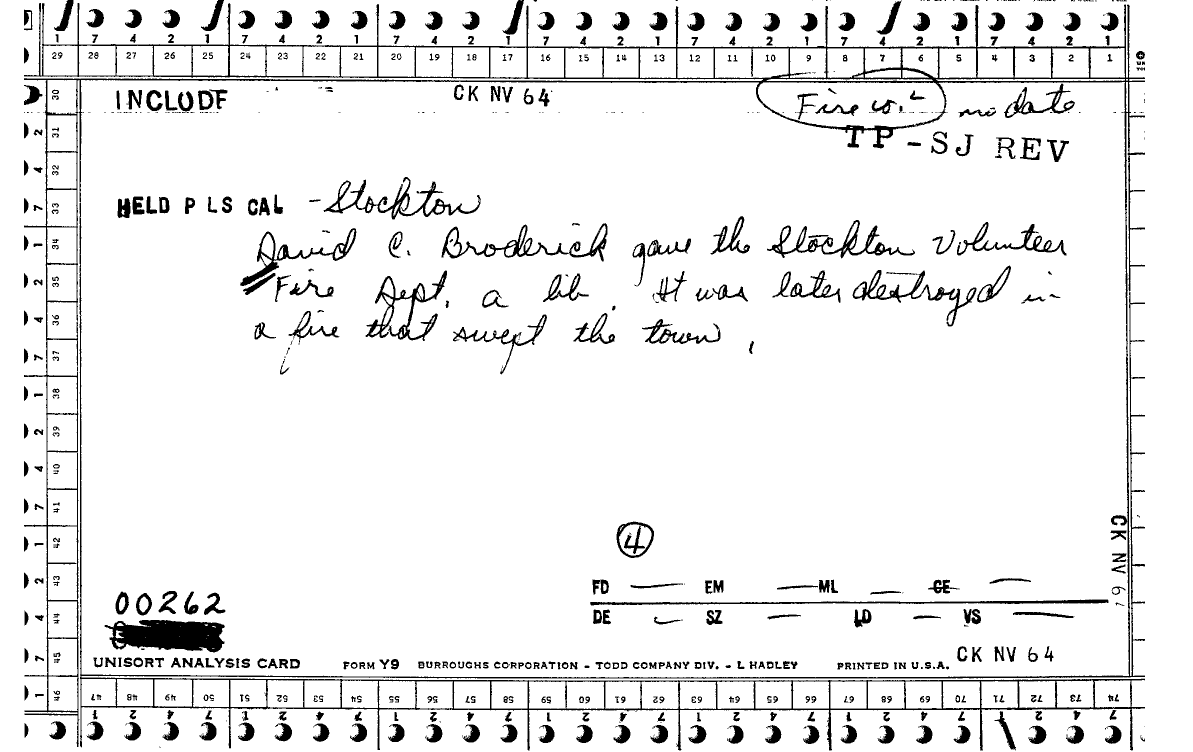 1 7 4 2 1 7 4 2 1 7 4 2 1 7 4 2 1 7 4 2 1 7 4 2 1 7 4 2 1
29 28 27 26 25 24 23 22 21 20 19 18 17 16 15 14 13 12 11 10 9 8 7 6 5 4 3 2 1
INCLUDE CK NV 64 Fire no date
TP-SJ REV
HELD PLS CAL - Stockton
David C. Broderick gave the Stockton Volunteer
Fire Dept. a lib. It was later destroyed in
a fire that swept the town.
4
FD EM ML CE
DE SZ LD VS
00262
CK NV 64
UNISORT ANALYSIS CARD FORM Y9 BURROUGHS CORPORATION - TODD COMPANY DIV. - L HADLEY PRINTED IN U.S.A.
30 31 32 33 34 35 36 37 38 39 40 41 42 43 44 45 46
2 4 7 1 2 4 7 1 2 4 7 1 2 4 7 1
CK NV
47 48 49 50 51 52 53 54 55 56 57 58 59 60 61 62 63 64 65 66 67 68 69 70 71 72 73 74
1 2 4 7 1 2 4 7 1 2 4 7 1 2 4 7 1 2 4 7 1 2 4 7 1 2 4 7